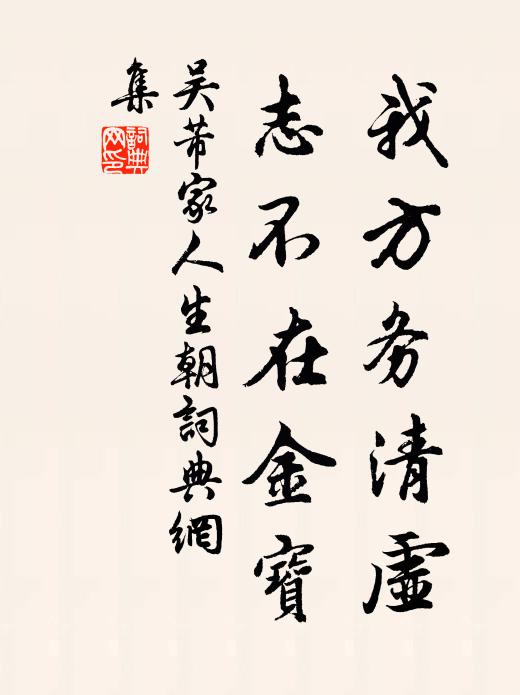 我方务清虛
志不在金寶
吴芾家人生朝詞典網
集
詞典網印